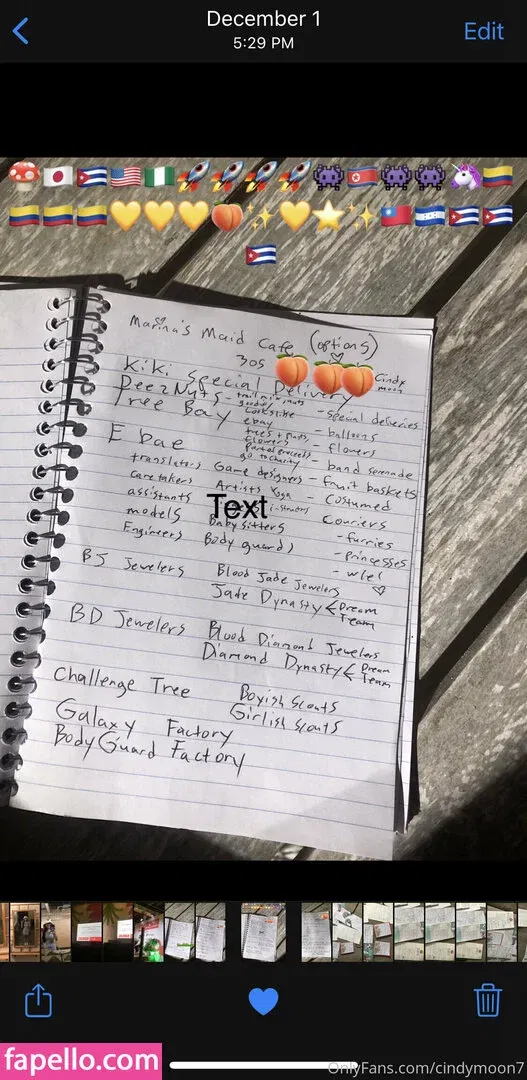 December 1
5:29 PM
Edit
Marina's Maid Cafe (options)
305
Cindy
moon
Kiki Special Delivery
DeezNuts - trail mix, nuts
goodies
Tree Bay
Looks like
ebay
trees + nuts
flowers
go to charity
- special deliveries
- balloons
- flowers
- band serenade
- fruit baskets
E bae
translators Game designers
caretakers Artists Yoga
assistants
models Babysitters
Engineers Body guards
Text
Costumed
Couriers
- furries
- princesses
- wlel
BJ Jewelers Blood Jade Jewelers
Jade Dynasty < Dream
Team
BD Jewelers Blood Diamond Jewelers
Diamond Dynasty < Dream
Team
Challenge Tree Boyish Scouts
Girlish Scouts
Galaxy Factory
BodyGuard Factory
fapello.com
OnlyFans.com/cindymoon7